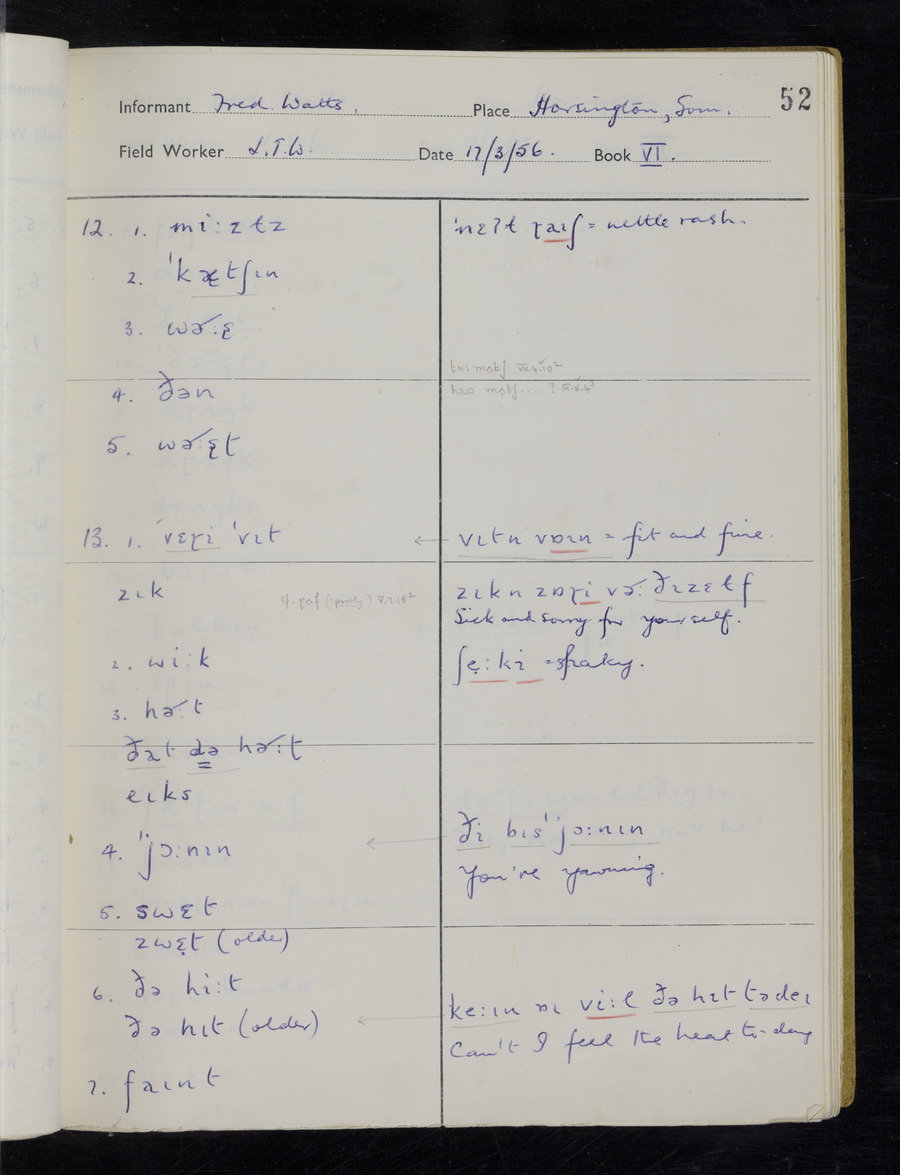 52
Informant Fred Watts. Place Horsington, Som.
Field Worker J.T.W. Date 17/3/56. Book VI.
12. 1. miːzɫz
2. ˈkætʃɪn
3. wɚːɛ̨
4. ðən
5. wɚːɛ̨t
13. 1. vɛɽi ˈvɪt
zɪk
2. wiːk
3. hɚːt
ðat də hɚːt
eɪks
4. ˈjɔːnɪn
5. swɛt
zwɛ̣t (older)
6. ðə hiːt
ðə hɪt (older)
7. faɪnt
ˈnɛʔɫ ɽaɪʃ = nettle rash.
VII.4.10²
vɪt n vɒɪn = fit and fine.
zɪk n zɒɽi vɚː ðɪzɛɫf
Sick and sorry for yourself.
ʃẹːki = shaky.
ði bɪs ˈjɔːnɪn
You're yawning.
keːɪn ɒɪ viːɫ ðə hɪt tədeɪ
Can't I feel the heat to-day